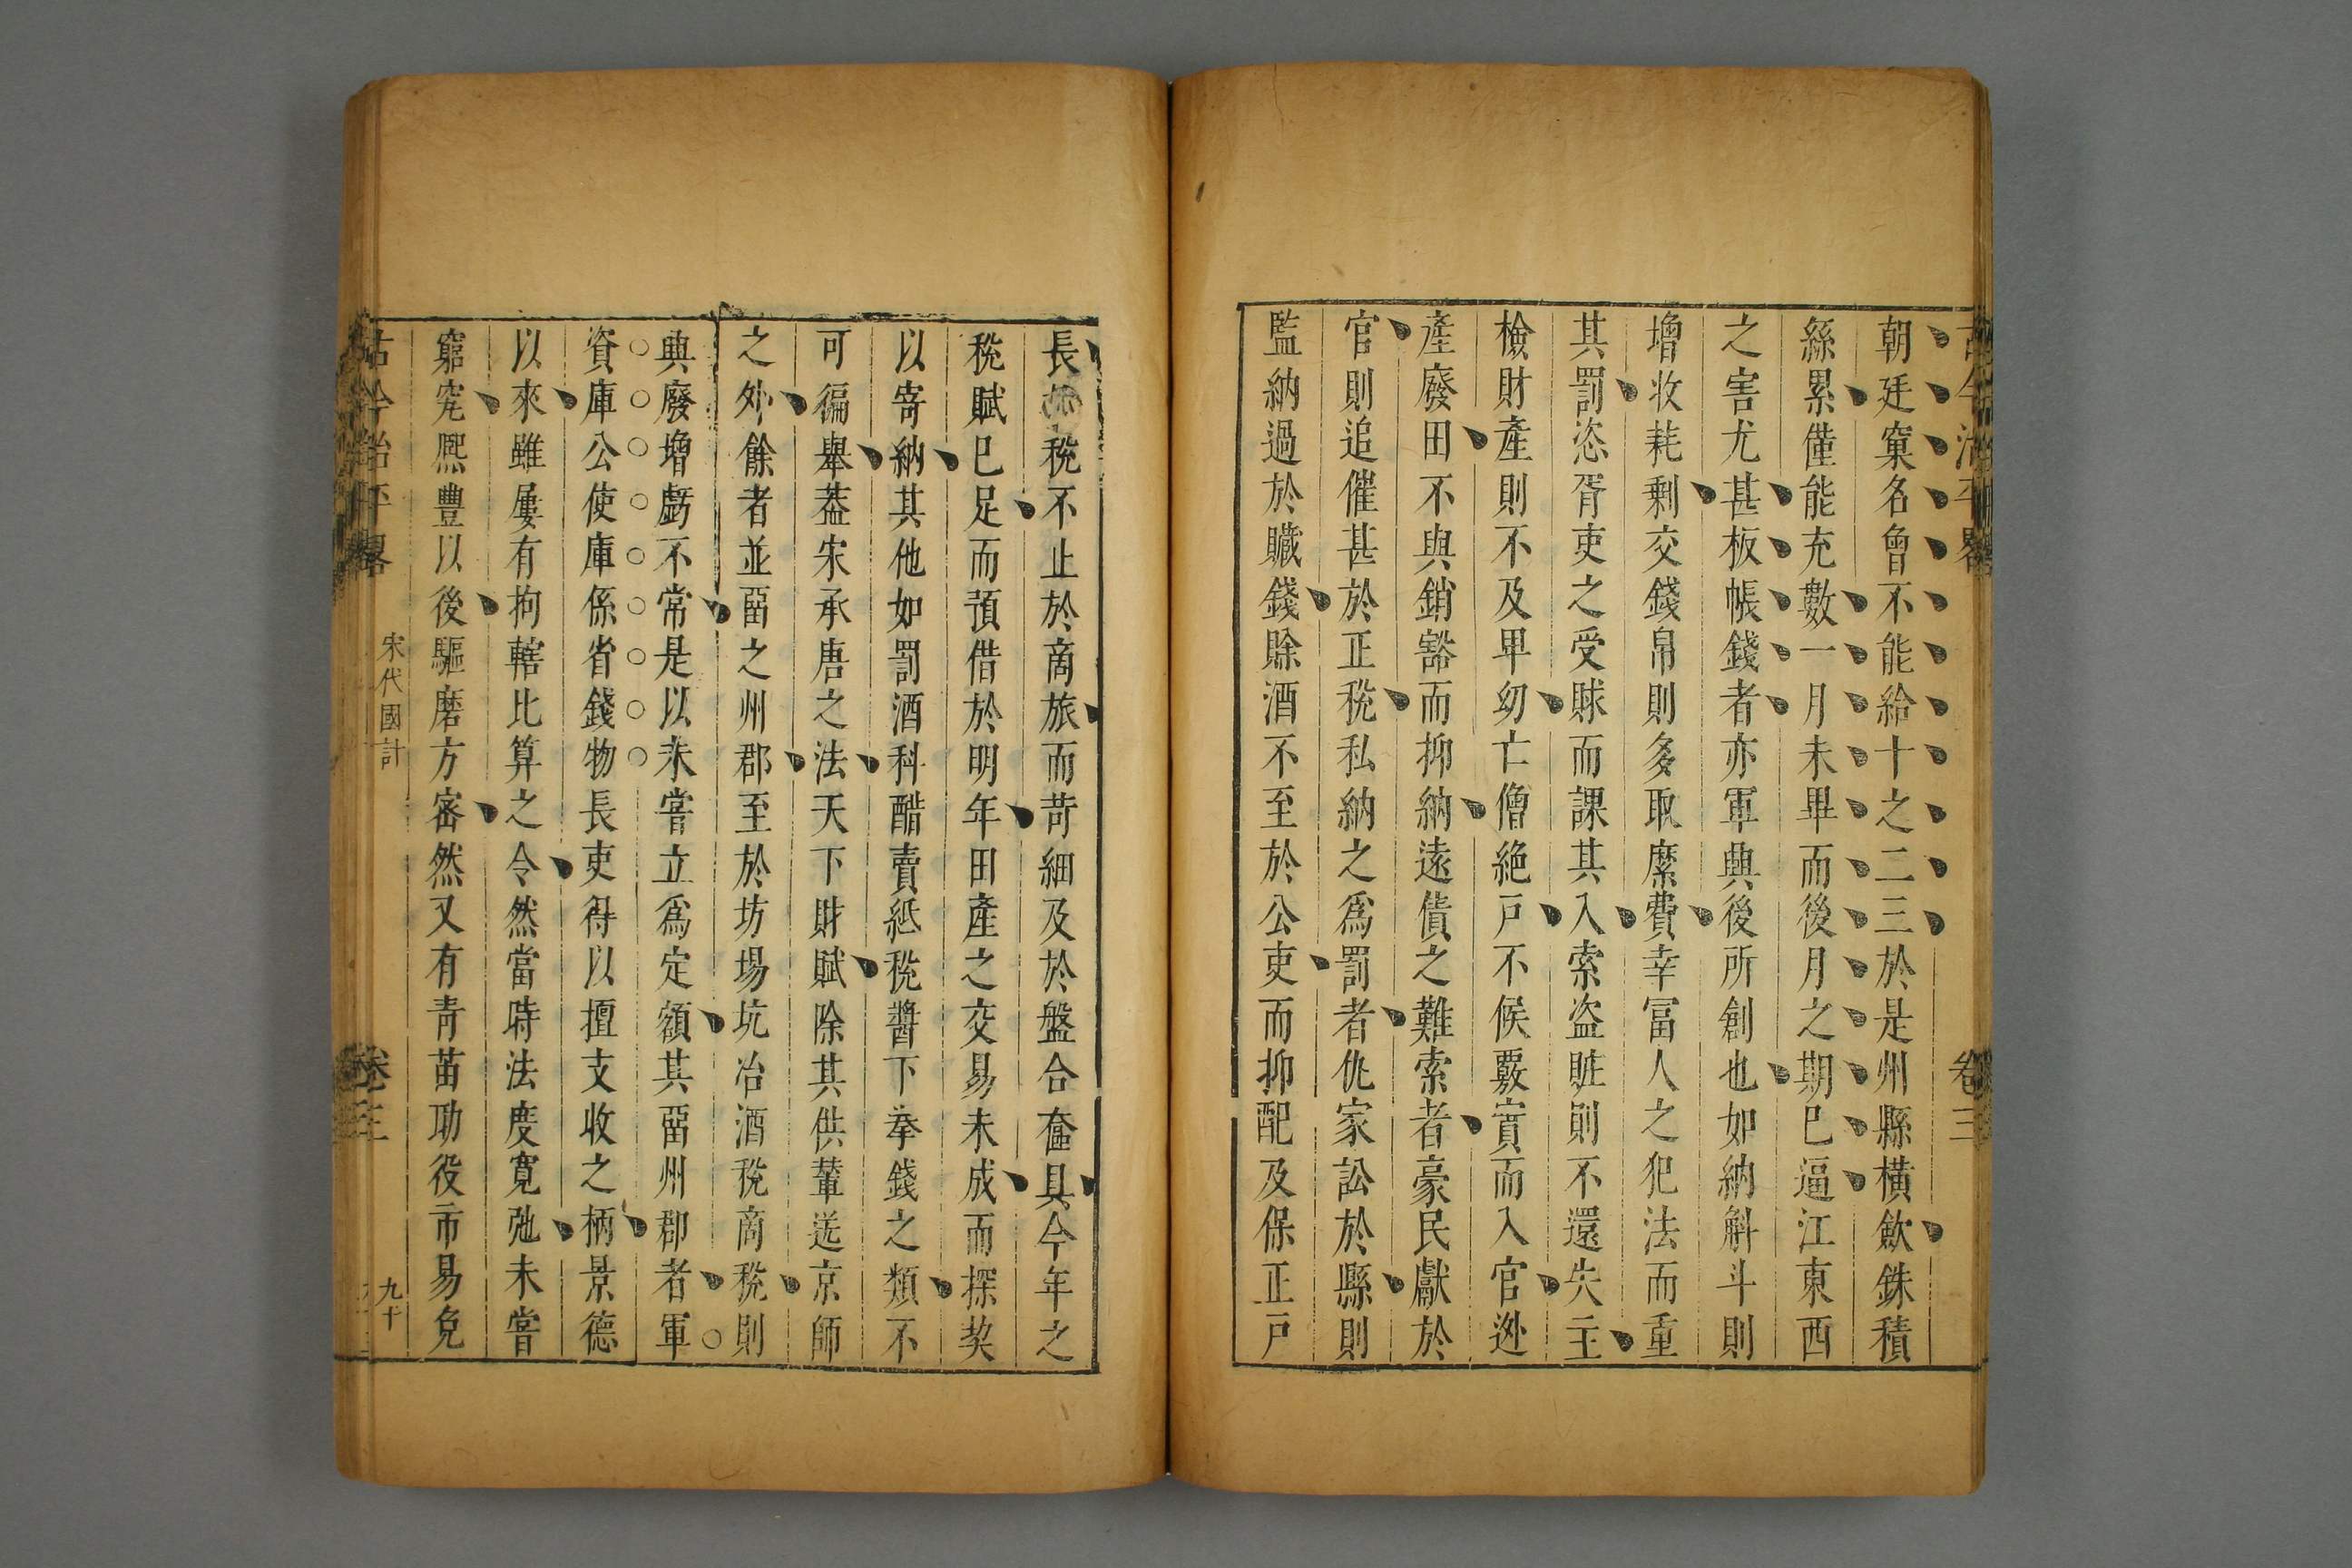 古今治平畧
卷三
朝廷窠名曾不能給十之二三於是州縣橫歛銖積
絲累僅能充數一月未畢而後月之期已逼江東西
之害尤甚板帳錢者亦軍興後所創也如納斛斗則
增收耗剩交錢帛則多取縻費幸冨人之犯法而重
其罰恣胥吏之受賕而課其入索盗賍則不還失主
檢財產則不及卑幼亡僧絶戸不候覈實而入官逃
產廢田不與銷豁而抑納逺債之難索者豪民獻於
官則追催甚於正稅私納之爲罰者仇家訟於縣則
監納過於贓錢賖酒不至於公吏而抑配及保正戸
長 稅不止於商旅而苛細及於盤合奩具今年之
稅賦已足而預借於明年田產之交易未成而探契
以寄納其他如罰酒科醋賣紙稅醬下拳錢之類不
可徧舉葢宋承唐之法天下財賦除其供輦送京師
之外餘者並畱之州郡至於坊場坑冶酒稅商稅則
興廢增虧不常是以未嘗立爲定額其畱州郡者軍
資庫公使庫係省錢物長吏得以擅支收之柄景德
以來雖屢有拘轄比算之令然當時法度寛弛未嘗
窮究熈豐以後驅磨方密然又有青苗助役市易免
古今治平畧
宋代國計
卷三
九十